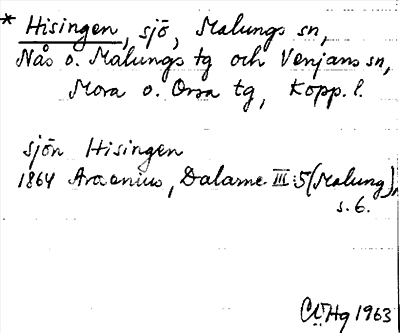 * Hisingen, sjö, Malungs sn,
Nås o. Malungs tg och Venjans sn,
Mora o. Orsa tg, Kopp. l.
sjön Hisingen
1864 Arosenius, Dalarne III:5 (Malung),
s. 6.
1963